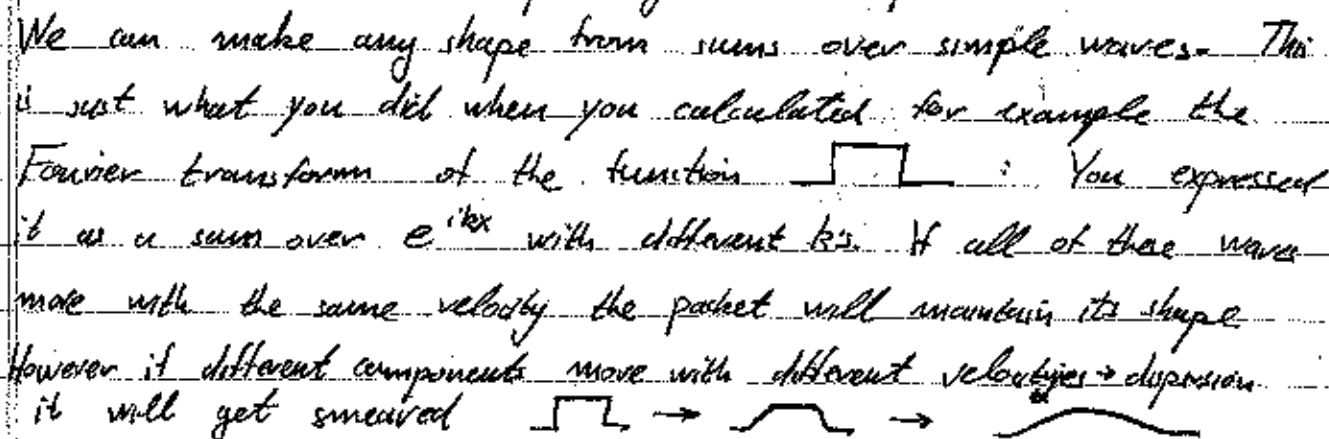 We can make any shape from sums over simple waves. This
is just what you did when you calculated for example the
Fourier transform of the function : You expressed
it as a sum over e^{ikx} with different k's. If all of these waves
move with the same velocity the packet will maintain its shape
However if different components move with different velocities → dispersion
it will get smeared → →